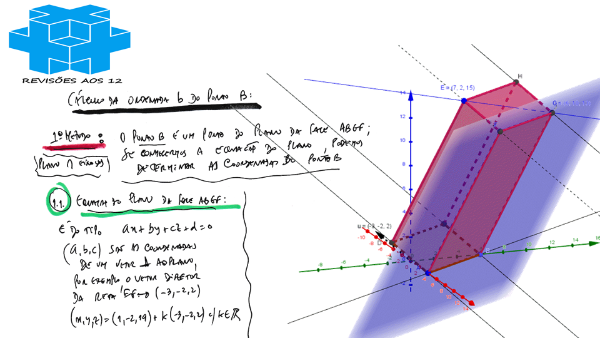 REVISÕES AOS 12
CÁLCULO DA ORDENADA b DO PONTO B:
1º MÉTODO:
(PLANO ∩ EIXO yy)
O PONTO B É UM PONTO DO PLANO DA FACE ABGF;
SE CONHECERMOS A EQUAÇÃO DO PLANO, PODEMOS
DETERMINAR AS COORDENADAS DO PONTO B
1.1. EQUAÇÃO DO PLANO DA FACE ABGF:
É DO TIPO ax+by+cz+d=0
(a,b,c) SÃO AS COORDENADAS
DE UM VETOR ⊥ AO PLANO,
POR EXEMPLO O VETOR DIRETOR
DA RETA EF → (-3,-2,2)
(x,y,z)=(1,-2,19)+k(-3,-2,2), k∈ℝ
E = (7, 2, 15)
H
G
u = (-3, -2, 2)